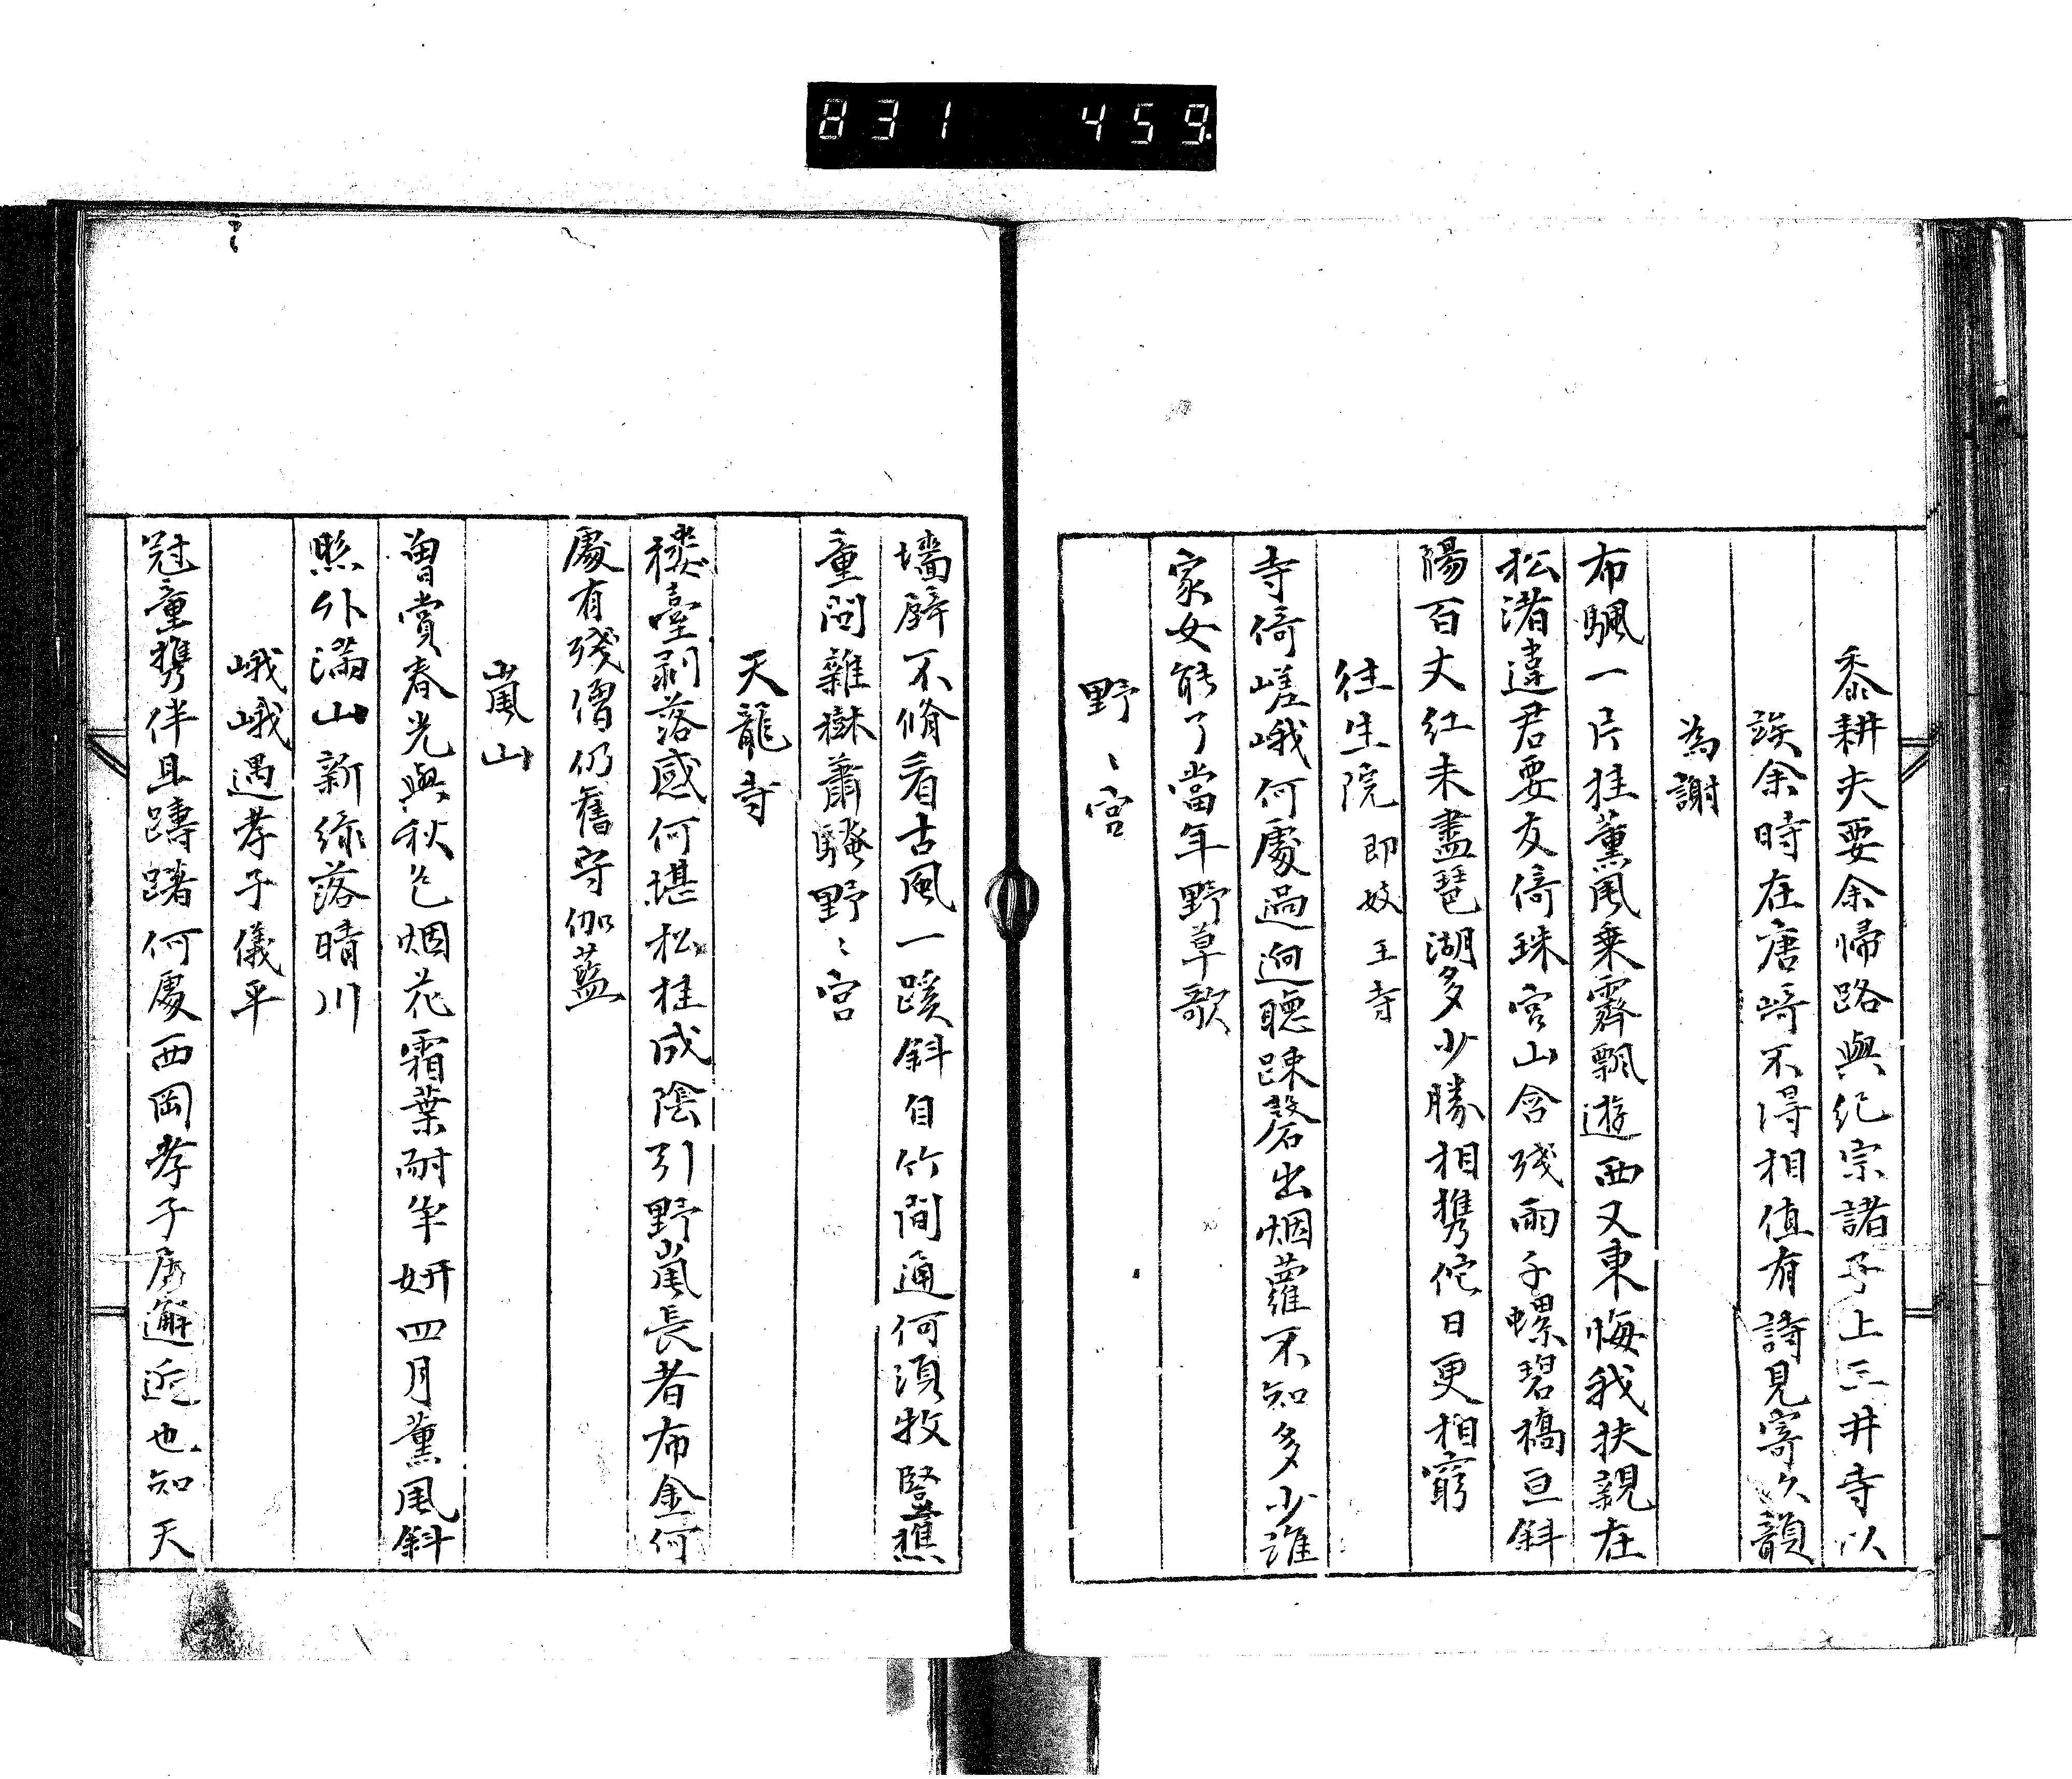 831 459
黍耕夫要余帰路與紀宗諸子上三井寺以
竢余時在唐崎不得相值有詩見寄次韻
為謝
布颿一片挂薫風乗霽飄遊西又東悔我扶親在
松渚違君要友倚珠宮山含殘雨千螺碧橋亘斜
陽百丈紅未盡琶湖多少勝相携佗日更相窮
往生院 即妓王寺
寺倚嵯峨何處過迥聴踈磬出烟蘿不知多少誰
家女能了當年野草歌
野〻宮
墻壁不脩看古風一蹊斜自竹間通何須牧豎樵
童問雜樹蕭騷野〻宮
天龍寺
樓臺剥落感何堪松桂成陰引野嵐長者布金何
處有殘僧仍舊守伽藍
嵐山
曽賞春光與秋色烟花霜葉耐争妍四月薫風斜
照外滿山新緑落晴川
峨峨遇孝子儀平
冠童携伴且躊躇何處西岡孝子居邂近也知天